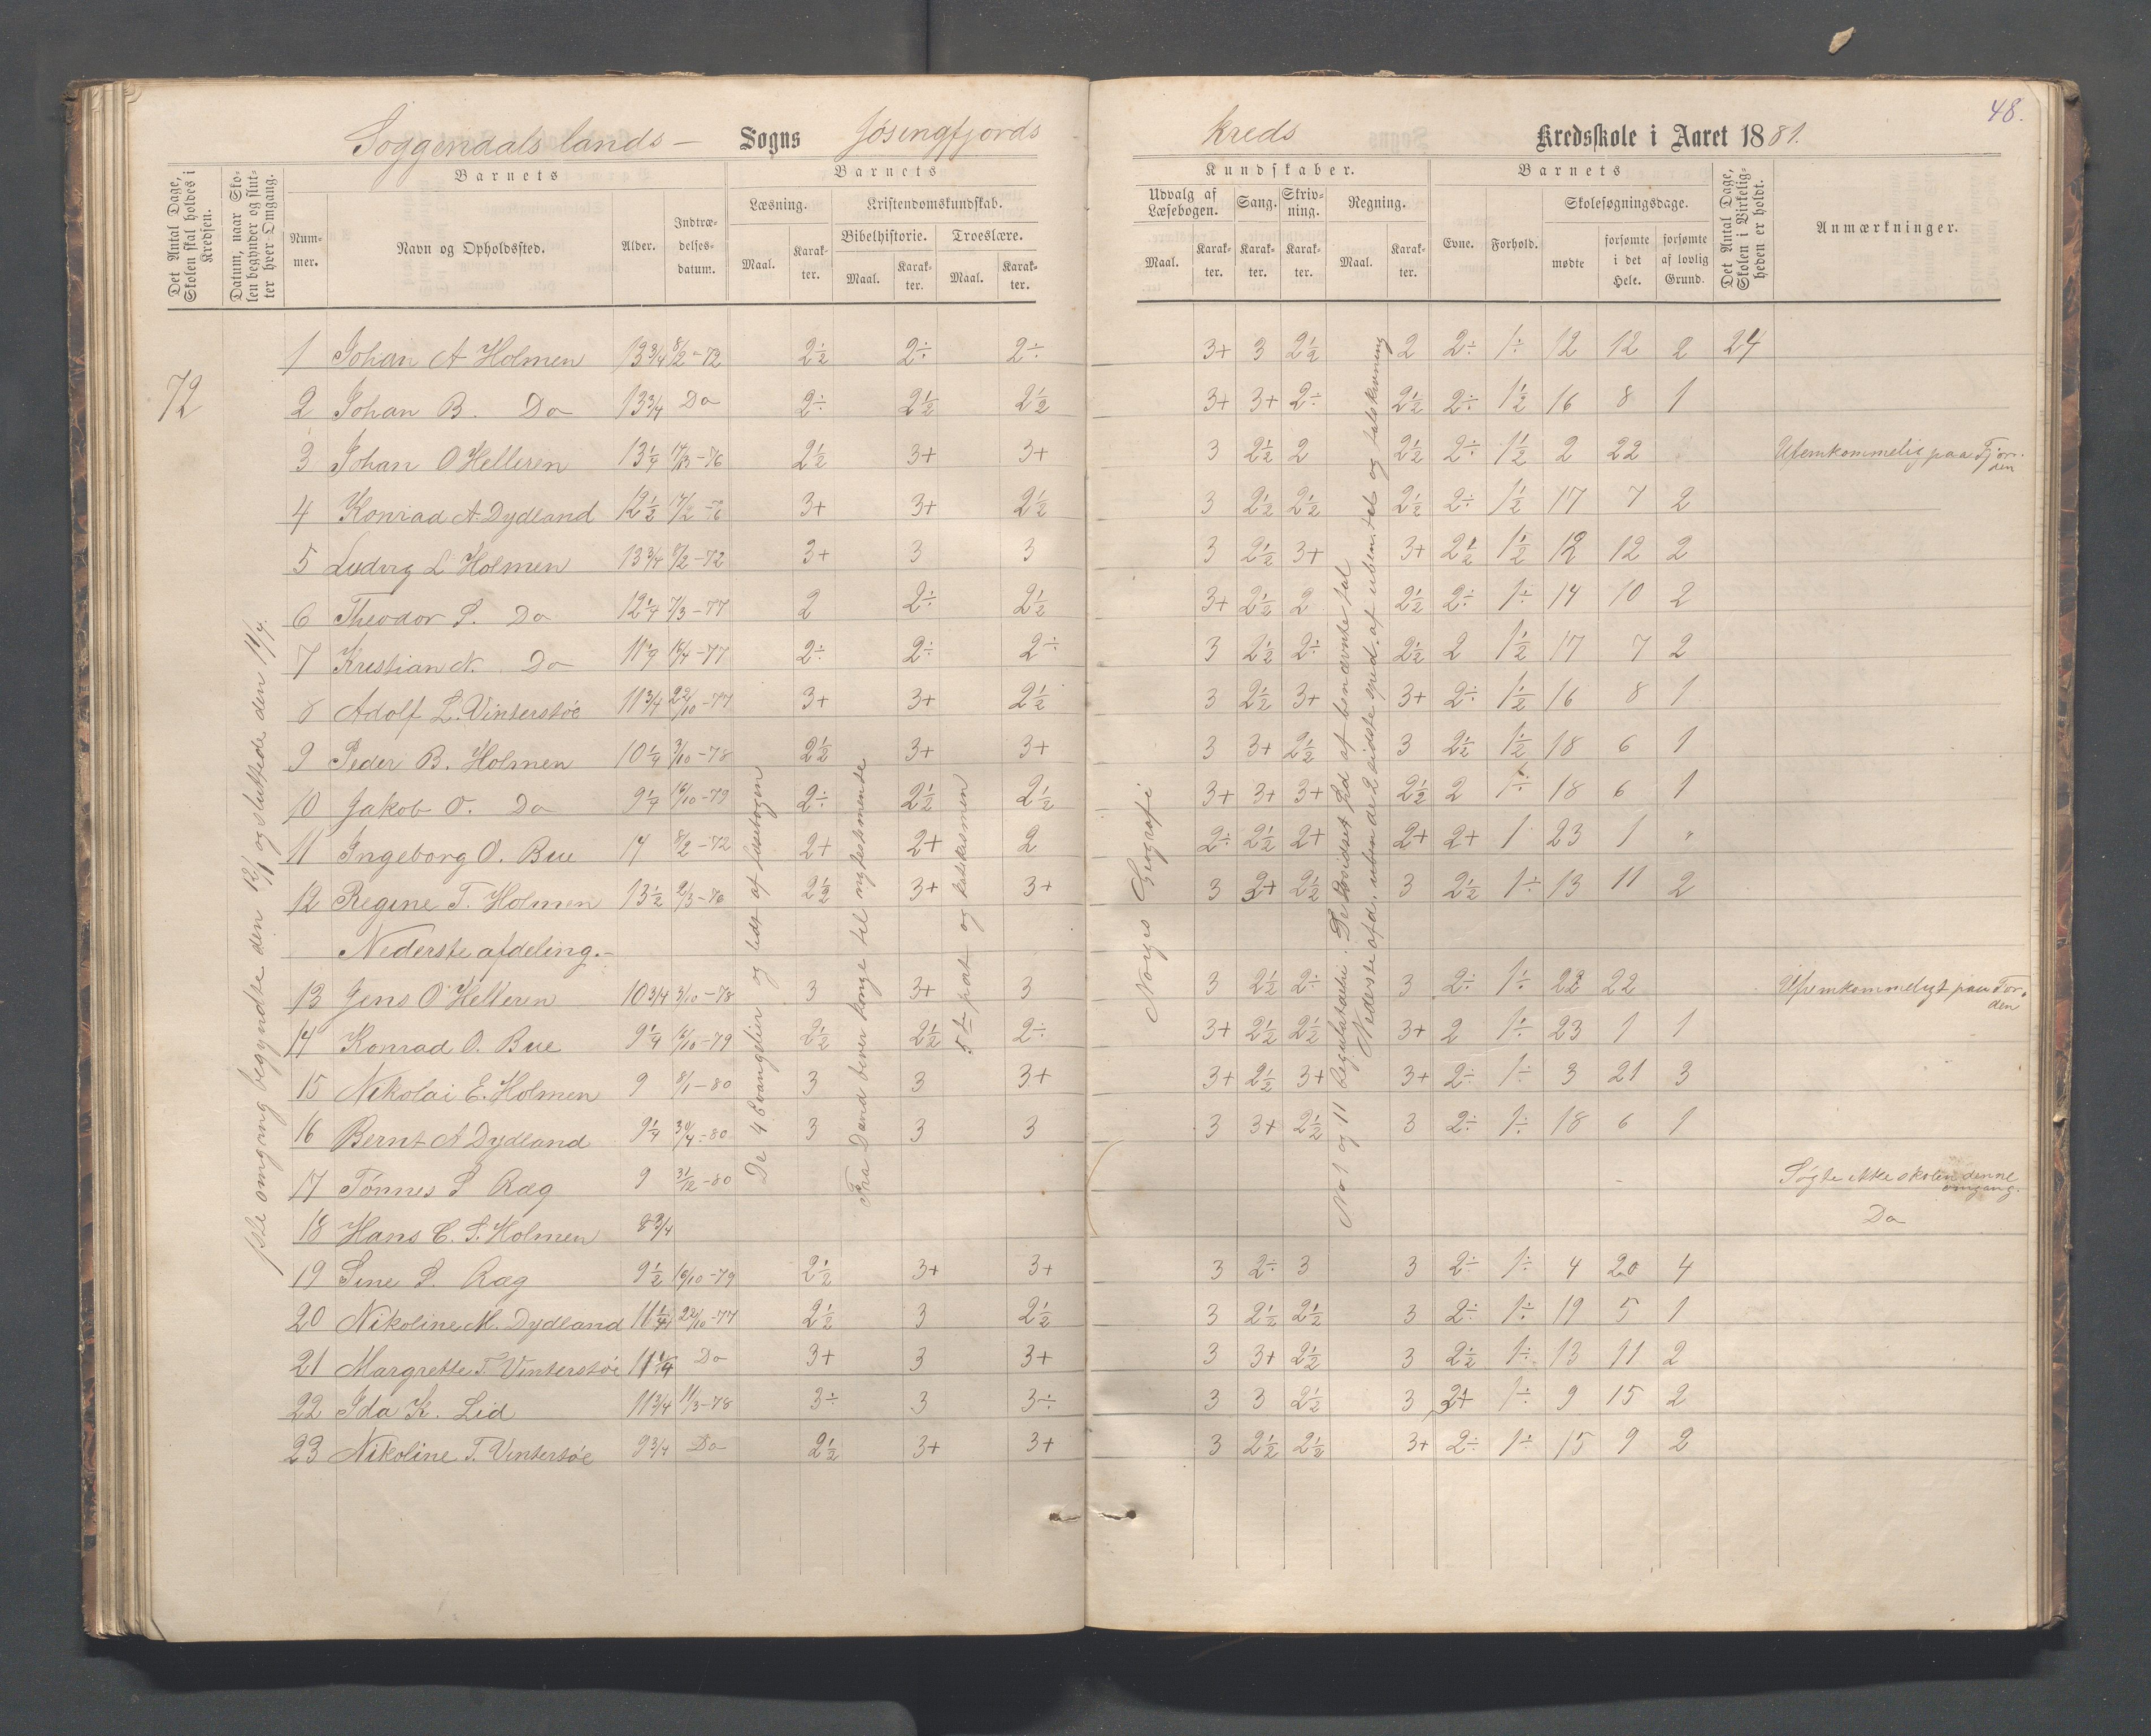 48.
Soggendals lands – Sogns Jøsingfjords Kreds Kredsskole i Aaret 1881.
Det Antal Dage, Skolen skal holdes i Kredsen.
Datum, naar Skolen begynder og slutter hver Omgang.
Barnets
Nummer.
Navn og Opholdssted.
Alder.
Indtrædelsesdatum.
Barnets
Læsning.
Maal. Karakter.
Kristendomskundskab.
Bibelhistorie. Troeslære.
Maal. Karakter. Maal. Karakter.
Kundskaber.
Udvalg af Læsebogen. Sang. Skrivning. Regning.
Maal. Karakter. Karakter. Karakter. Maal. Karakter.
Barnets
Evne. Forhold.
Skolesøgningsdage.
mødte forsømte i det Hele. forsømte af lovlig Grund.
Det Antal Dage, Skolen i Virkeligheden er holdt.
Anmærkninger.
72
1ste omgang begyndte den 12/1 og sluttede den 11/4.
De 4 Evangelier og lidt af læsebogen
Fra David bliver konge til nytestamente
5te part og katekismen
Norges Geografi
No 1 og 11 Regulatadri. De
Nederste afd. uben de 2 sidste sped. af uben. tal og
1 Johan A Holmen 13 3/4 8/2-72 2½ 2÷ 2÷ 3+ 3 2½ 2 2÷ 1÷ 12 12 2 24
2 Johan B. Do 13 3/4 Do 2÷ 2½ 2½ 3+ 3+ 2÷ 2½ 2÷ 1½ 16 8 1
3 Johan O Helleren 13 1/4 17/3-76 2½ 3+ 3+ 3 2½ 2 2½ 2÷ 1½ 2 22 Ufemkommelig paa Fjorden
4 Konrad A. Dydland 12½ 17/2-76 3+ 3+ 2½ 3 2½ 2½ 2½ 2÷ 1½ 17 7 2
5 Ludvig L Holmen 13 3/4 8/2-72 3+ 3 3 3 2½ 3+ 3+ 2½ 1½ 12 12 2
6 Theodor S. Do 12 1/4 7/3-77 2 2÷ 2½ 3+ 2½ 2 2½ 2÷ 1÷ 14 10 2
7 Kristian N. Do 11 1/4 16/4-77 2÷ 2÷ 2÷ 3 2½ 2÷ 2½ 2 1½ 17 7 2
8 Adolf L. Vinterstøe 11 3/4 22/10-77 3+ 3+ 2½ 3 2½ 3+ 3+ 2÷ 1½ 16 8 1
9 Peder B. Holmen 10 1/4 3/10-78 2½ 3+ 3+ 3 3+ 2½ 3 2½ 1½ 18 6 1
10 Jakob O. Do 9 1/4 16/10-79 2÷ 2½ 2½ 3+ 3+ 3+ 2½ 2 1÷ 18 6 1
11 Ingeborg O. Bue 14 8/2-72 2+ 2+ 2 2÷ 2½ 2+ 2+ 2+ 1 23 1 "
12 Regine T. Holmen 13½ 2/3-76 2½ 3+ 3+ 3 2+ 2½ 3 2½ 1÷ 13 11 2
Nederste afdeling.-
13 Jens O Helleren 10 3/4 3/10-78 3 3+ 3 3 2½ 2÷ 3 2÷ 1÷ 22 22 Ufremkommeligt paa Fjorden
14 Konrad O. Bue 9 1/4 16/10-79 2½ 2½ 2÷ 3+ 2½ 2½ 3+ 2 1÷ 23 1 1
15 Nikolai E. Holmen 9 8/1-80 3 3 3+ 3+ 2½ 3+ 3+ 2÷ 1÷ 3 21 3
16 Bernt A Dydland 9 1/4 30/4-80 3 3 3 3 3+ 2½ 3 2÷ 1÷ 18 6 1
17 Tønnes S Ræg 9 31/12-80 Søgte ikke skolen denne omgang.
18 Hans C. S. Holmen 8 3/4 Do
19 Sine S. Ræg 9½ 16/10-79 2½ 3+ 3+ 3 2÷ 3 3 2÷ 1÷ 4 20 4
20 Nikoline M. Dydland 11 1/4 22/10-77 2½ 3 2½ 3 2½ 2½ 3 2÷ 1÷ 19 5 1
21 Margrette T. Vinterstøe 11 1/4 Do 3+ 3 3+ 3 3+ 2½ 3 2½ 1÷ 13 11 2
22 Ida K. Lid 11 3/4 11/3-78 3÷ 3 3÷ 3 3 2½ 3 2+ 1÷ 9 15 2
23 Nikoline T. Vintersøe 9 3/4 Do 2½ 3+ 3+ 3 2½ 2½ 3+ 2÷ 1÷ 15 9 2